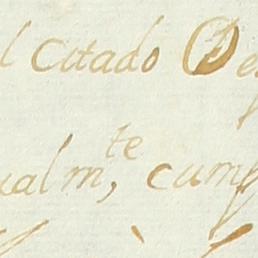 l citado De
ualm.te cump